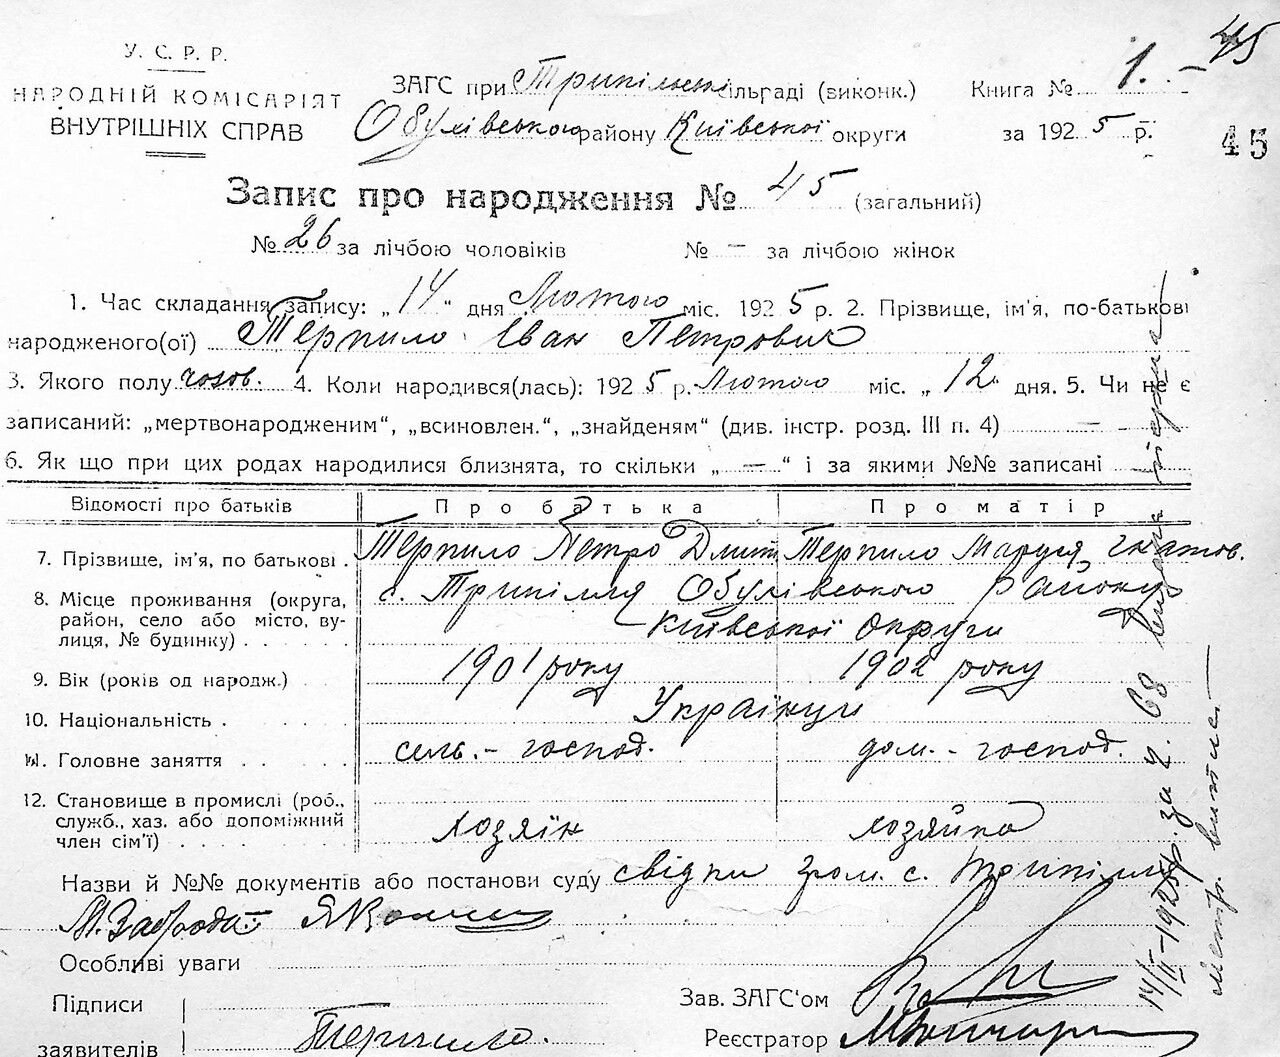 45
У. С. Р. Р.
НАРОДНІЙ КОМІСАРІЯТ
ВНУТРІШНІХ СПРАВ
ЗАГС при Трипільській сільраді (виконк.) Книга № 1.
Обухівського району Київської округи за 1925 р.
45
Запис про народження № 45 (загальний)
№ 26 за лічбою чоловіків № — за лічбою жінок
1. Час складання запису: „14“ дня Лютого міс. 1925 р. 2. Прізвище, ім'я, по-батькові
народженого(ої) Терпило Іван Петрович
3. Якого полу чолов. 4. Коли народився(лась): 1925 р. Лютого міс. „12 дня. 5. Чи не є
записаний: „мертвонародженим“, „всиновлен.“, „знайденям“ (див. інстр. розд. III п. 4) —
6. Як що при цих родах народилися близнята, то скільки „—“ і за якими №№ записані
Відомості про батьків Про батька Про матір
7. Прізвище, ім'я, по батькові . Терпило Петро Дмит Терпило Маруся Гнатов.
8. Місце проживання (округа, с. Трипілля Обухівського Району
район, село або місто, ву- Київської Округи
лиця, № будинку) . . . . .
9. Вік (років од народж.) . 1901 року 1902 року
10. Національність . . . . Українци
11. Головне заняття . . . . сель. - господ. дом. - господ.
12. Становище в промислі (роб.,
служб., хаз. або допоміжний хозяїн хозяйка
член сім'ї) . . . . . . .
Назви й №№ документів або постанови суду свідки гром. с. Трипілля
М. Заброда
Особливі уваги
Підписи Зав. ЗАГС'ом
заявителів Терпило. Реєстратор
14/II-1925 р. за ч. 68 видан
метр. витяг —